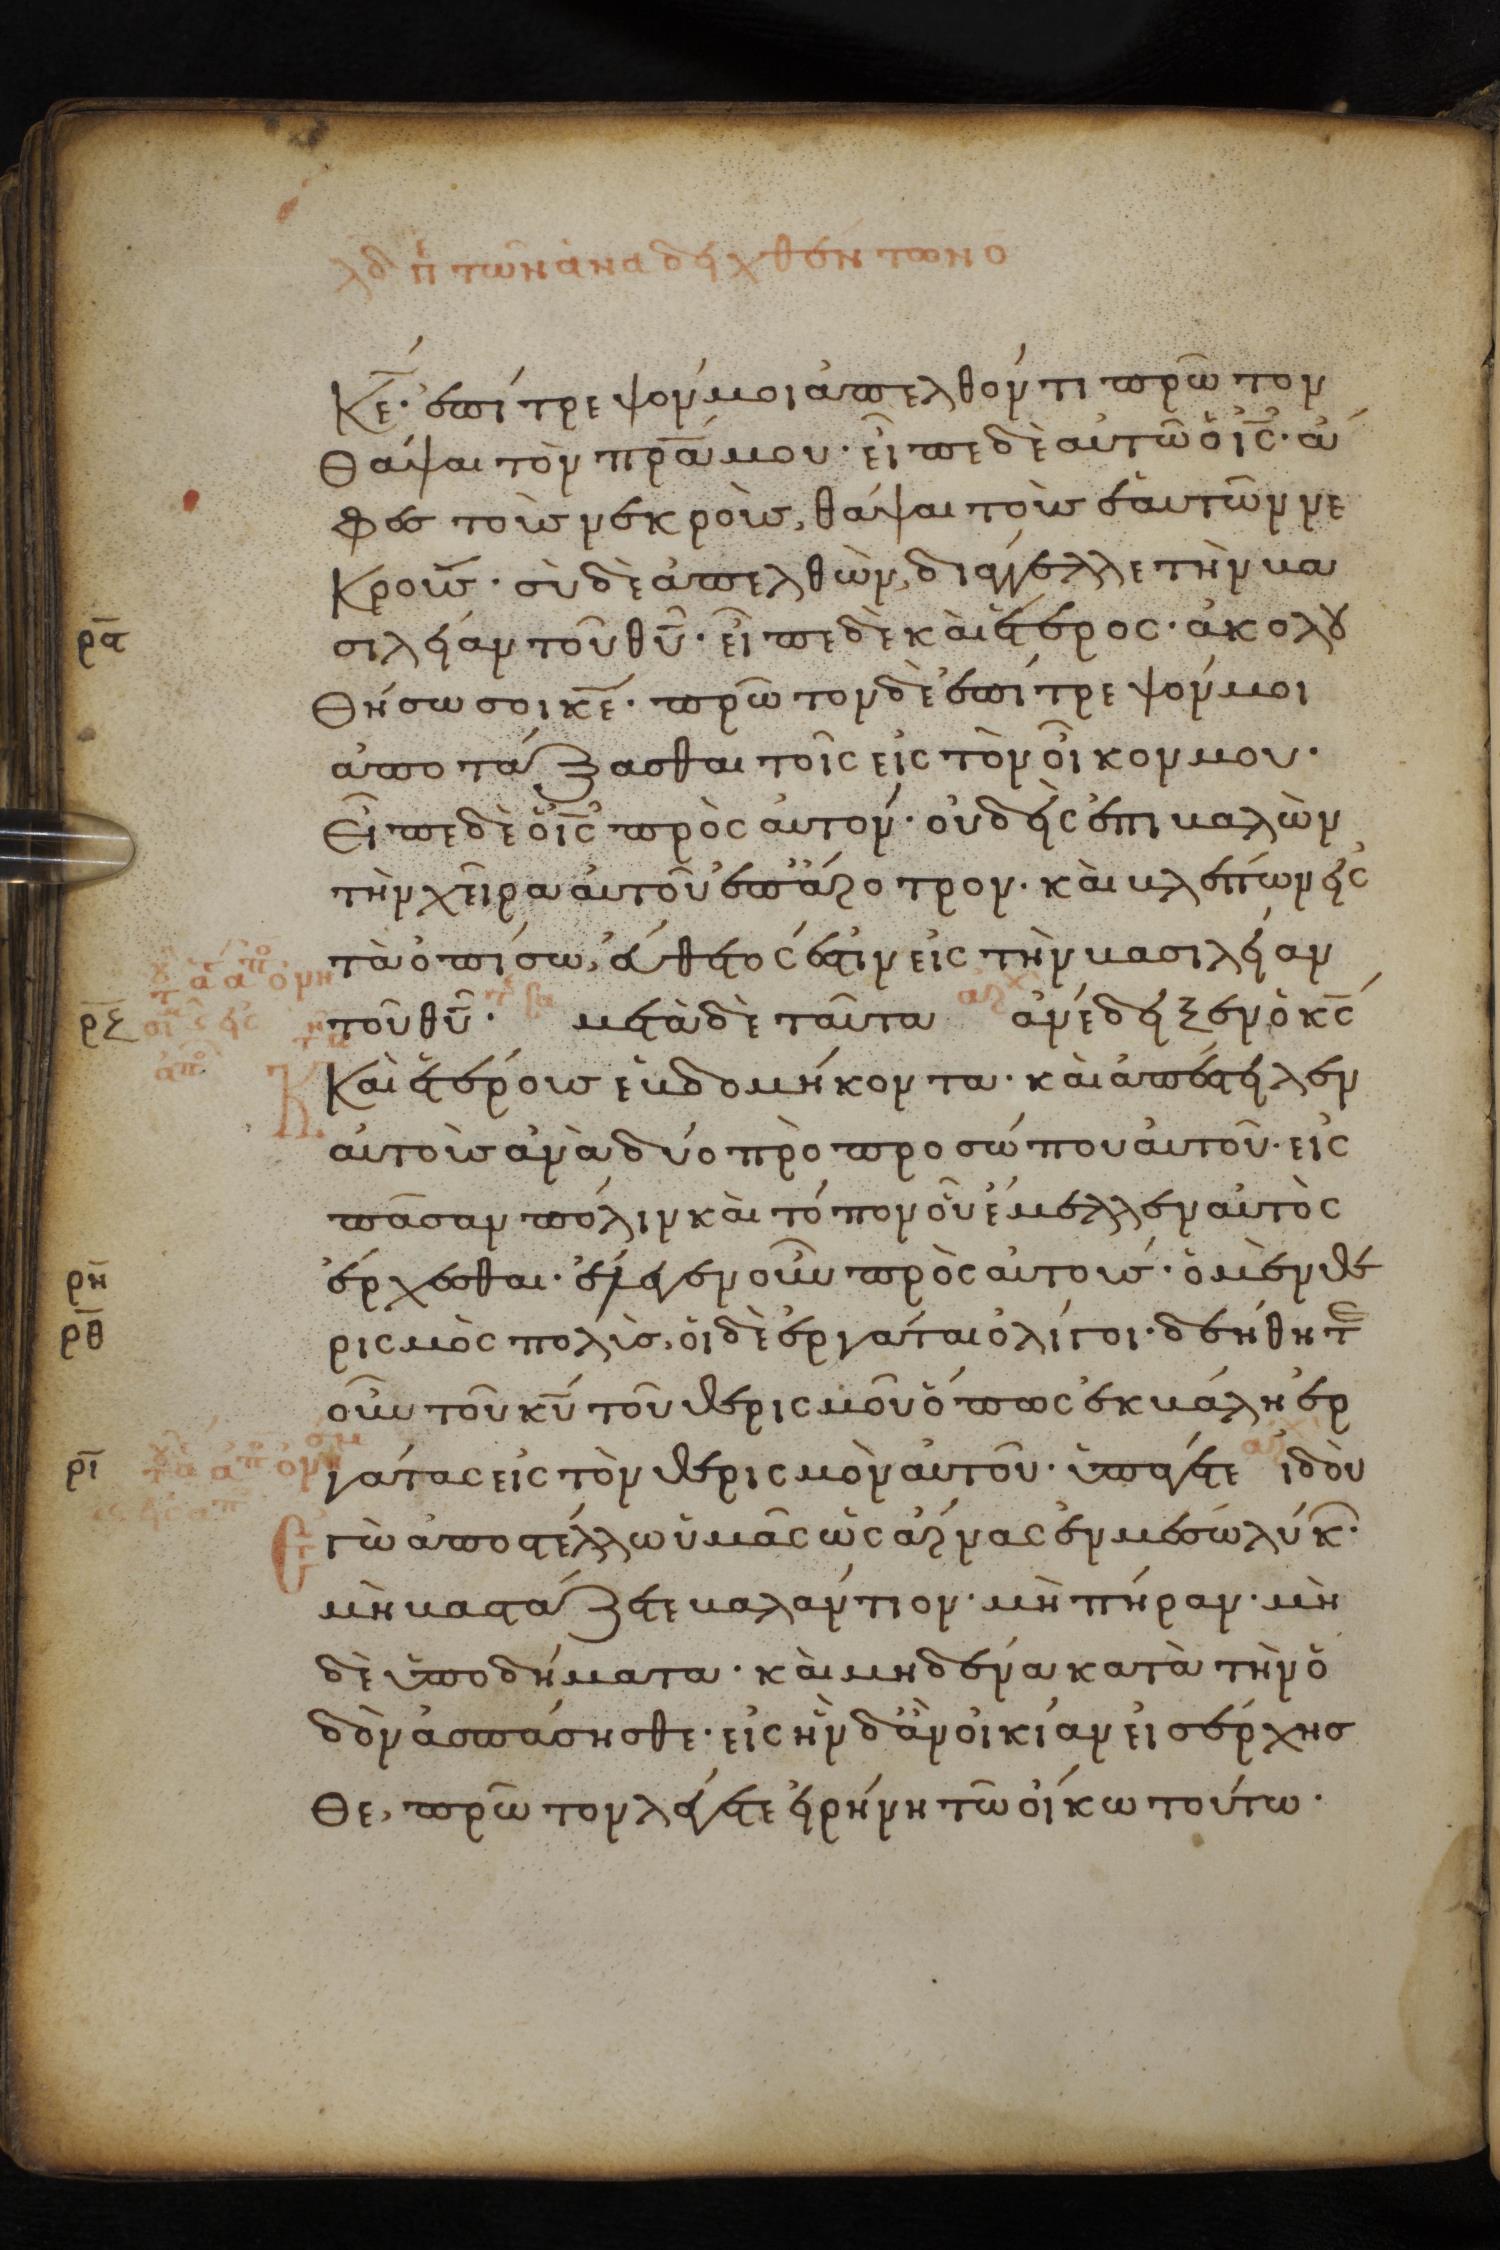 λδ π τῶν ἀναδειχθέντων ο
κε̄· ἐπίτρεψόν μοι ἀπελθόντι πρῶτον
θάψαι τὸν πρ̄α μου· εἶπε δὲ αὐτῶ ὁ ις̄· ἄ
φες τοὺς νεκροὺς, θάψαι τοὺς ἑαυτῶν νε
κρούς· σὺ δὲ ἀπελθὼν, διάγγελλε τὴν βα
σιλείαν τοῦ θῡ· εἶπε δὲ καὶ ἕτερος· ἀκολου
ρα
θήσω σοι κε̄· πρῶτον δὲ ἐπίτρεψόν μοι
ἀποτάξασθαι τοῖς εἰς τὸν οἶκον μου·
Εἶπε δὲ ὁ ις̄ πρὸς αὐτόν· οὐδεὶς ἐπιβαλὼν
τὴν χεῖρα αὐτοῦ ἐπ' ἄροτρον· καὶ βλέπων εἰς
τὰ ὀπίσω, εὔθετός ἐστιν εἰς τὴν βασιλείαν
τοῦ θῡ· μετὰ δὲ ταῦτα ἀνέδειξεν ὁ κς̄
ρζ
Καὶ ἑτέρους ἑβδομήκοντα· καὶ ἀπέστειλεν
αὐτοὺς ἀνὰ δύο πρὸ προσώπου αὐτοῦ· εἰς
πᾶσαν πόλιν καὶ τόπον οὗ ἔμελλεν αὐτὸς
ἔρχεσθαι· ἔλεγεν οὖν πρὸς αὐτούς· ὁ μὲν θε
ρη
ρισμὸς πολὺς, οἱ δὲ ἐργάται ὀλίγοι· δεήθητε
ρθ
οὖν τοῦ κῡ τοῦ θερισμοῦ ὅπως ἐκβάλη ἐρ
γάτας εἰς τὸν θερισμὸν αὐτοῦ· ὑπάγετε ἰδοὺ
ρι
Εγὼ ἀποστέλλω ὑμᾶς ὡς ἄρνας ἐν μέσω λύκ·
μὴ βαστάζετε βαλάντιον· μὴ πήραν· μὴ
δὲ ὑποδήματα· καὶ μηδένα κατὰ τὴν ὁ
δὸν ἀσπάσησθε· εἰς ἣν δ' ἂν οἰκίαν εἰσέρχησ
θε, πρῶτον λέγετε εἰρήνη τῶ οἴκω τούτω·